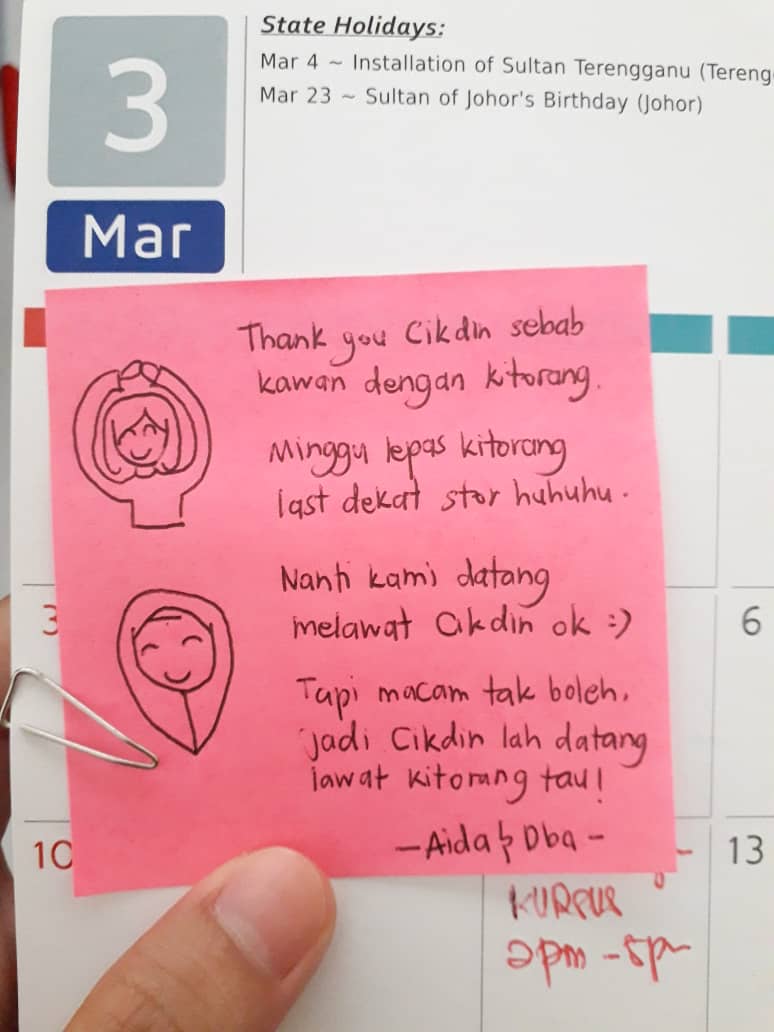 3
Mar
State Holidays:
Mar 4 ~ Installation of Sultan Terengganu
Mar 23 ~ Sultan of Johor's Birthday (Johor)
Thank you Cikdin sebab
kawan dengan kitorang.
Minggu lepas kitorang
last dekat stor huhuhu.
Nanti kami datang
melawat Cikdin ok :)
Tapi macam tak boleh,
jadi Cikdin lah datang
lawat kitorang tau!
-Aida & Dba-
3
6
10
13
KURSUS
2pm - 5pm